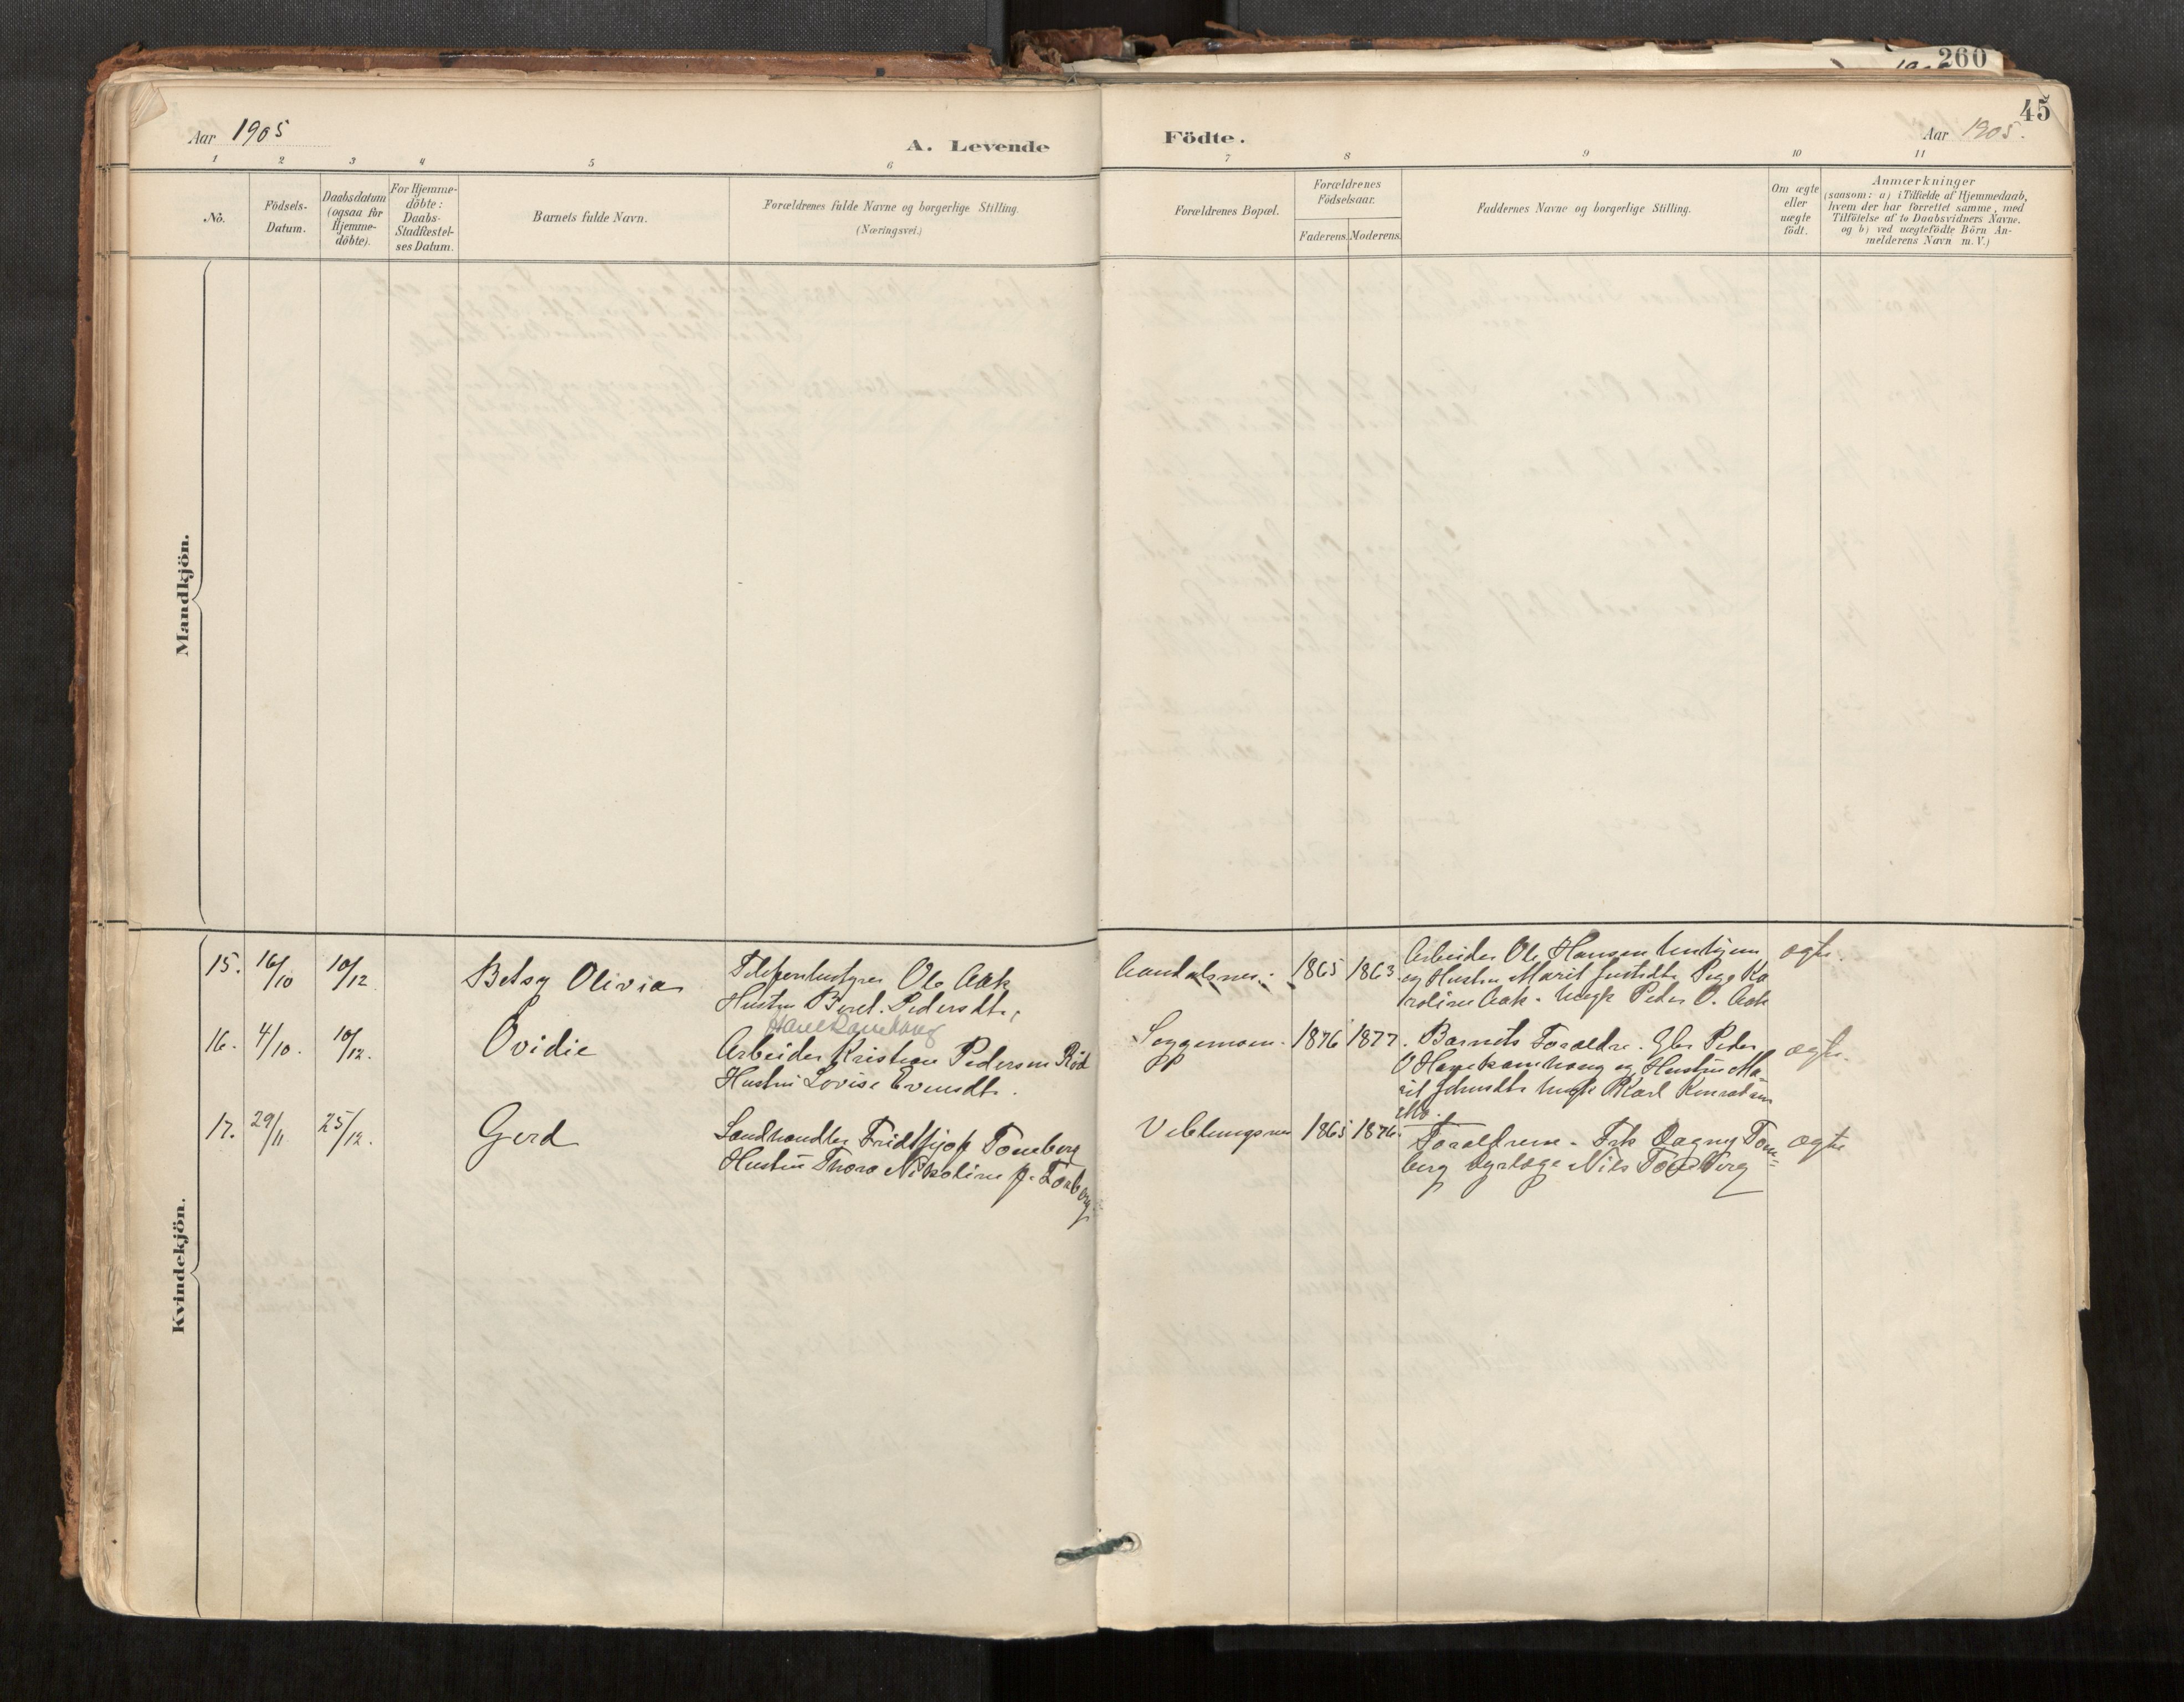 260
45
Aar 1905
A. Levende
Födte.
Aar 1905.
1 2 3 4 5 6 7 8 9 10 11
No.
Födsels-
Datum.
Daabsdatum
(ogsaa for
Hjemme-
döbte).
For Hjemme-
döbte:
Daabs-
Stadfæstel-
ses Datum.
Barnets fulde Navn.
Forældrenes fulde Navne og borgerlige Stilling.
(Næringsvei.)
Forældrenes Bopæl.
Forældrenes
Födselsaar.
Faderens. Moderens.
Faddernes Navne og borgerlige Stilling.
Om ægte
eller
uægte
födt.
Anmærkninger
(saasom: a) i Tilfælde af Hjemmedaab,
hvem der har forrettet samme, med
Tilföielse af to Daabsvidners Navne.
og b) ved uægtefödte Börn An-
melderens Navn m. V.)
Mandkjön.
Kvindekjön.
15. 16/10 10/12 Betsy Olivia
Ole Aak
Hustru Beret Pedersdt.
Aandalsnes. 1865 1863.
Arbeider Ole Hansen
og Hustru Marit Pige Ka
roline Aak. Ungk Peder O. Aak
ægte.
16. 4/10. 10/12. Ovidie
Hanekamhaug
Arbeider Kristian Pedersen Röd
Hustru Lovise Evensdt.
Soggemoen. 1876 1877.
Barnets Foraeldre. Gbr Peder
O Hanekamhaug og Hustru Ma
rit Johnsdt. Ungk Karl Konradsen
Mo.
ægte.
17. 29/11 25/12. Gerd
Landhandler Fridtjof Tomberg
Hustru Thora Nikoline f. Torberg
Veblungsnes 1865 1876.
Foraeldrene. Frk Dagny Tom=
berg Dyrlæge Nils Tomberg
ægte